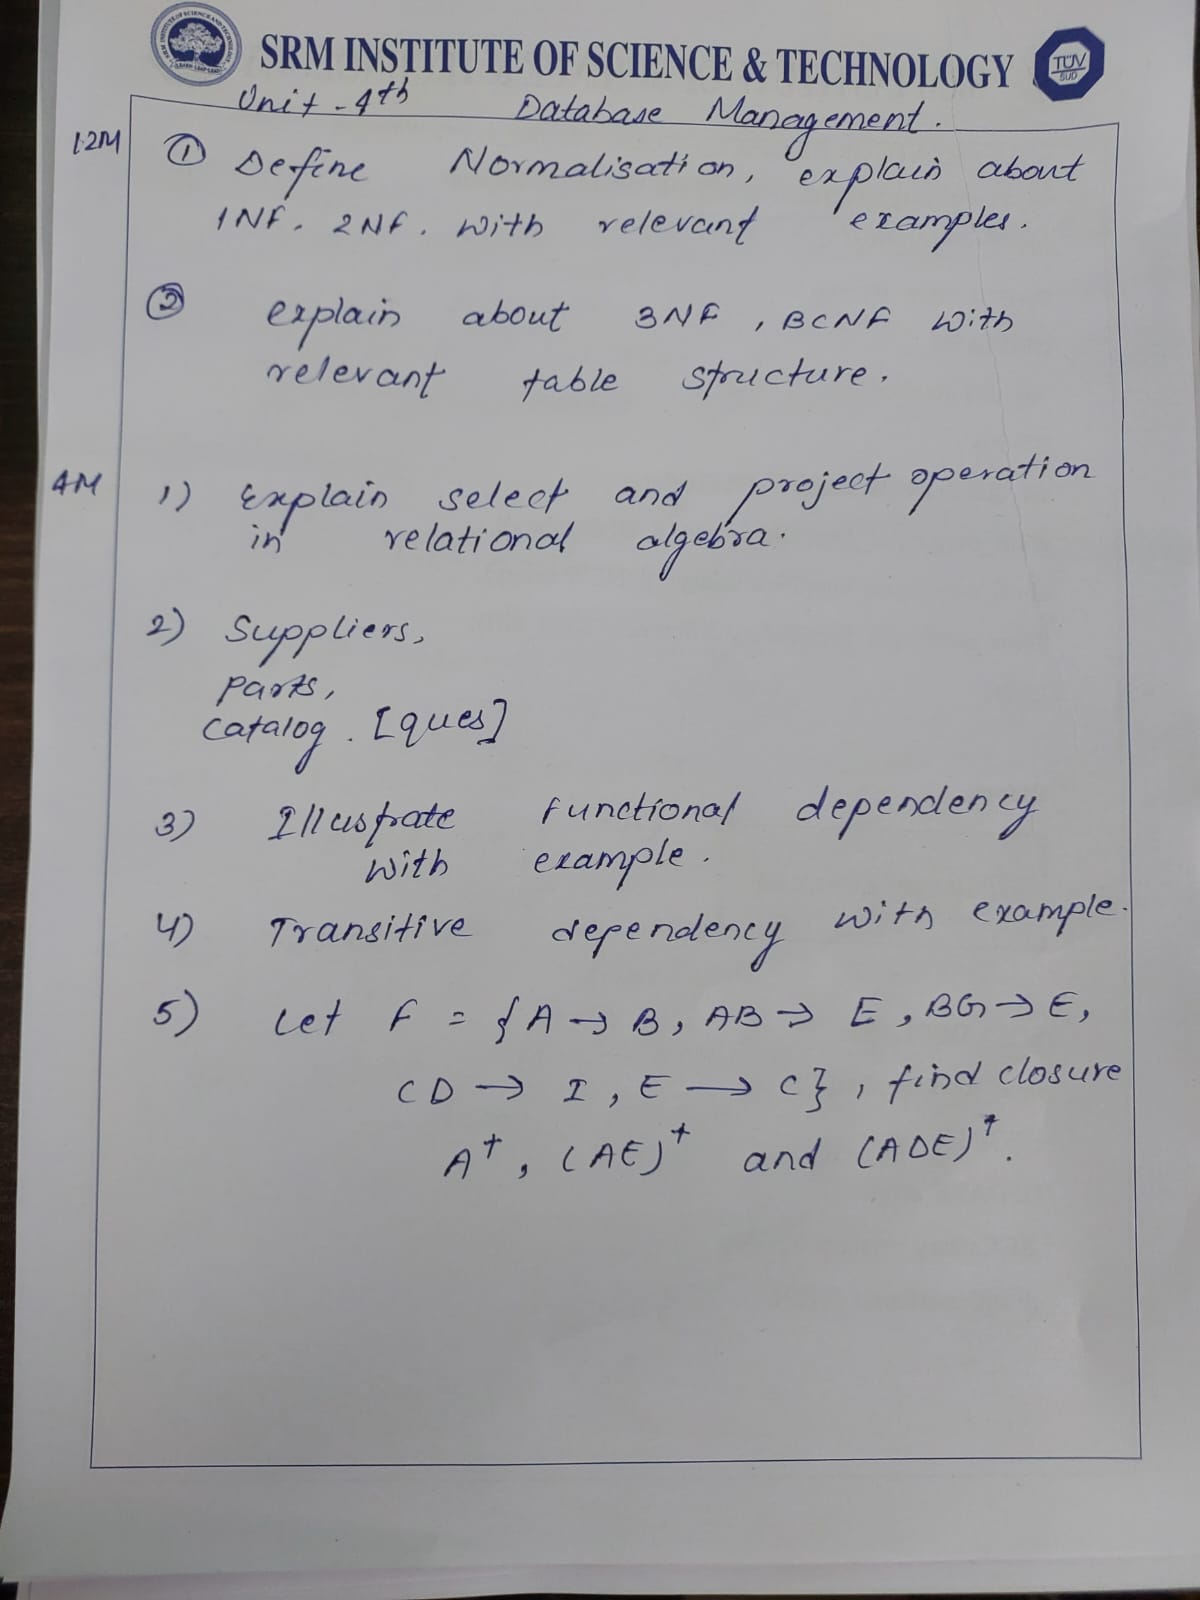 SRM INSTITUTE OF SCIENCE & TECHNOLOGY
TUV
SUD
Unit - 4th Database Management.
12M ① Define Normalisation, explain about
1NF, 2NF, with relevant examples.
② explain about 3NF, BCNF with
relevant table structure.
4M 1) Explain select and project operation
in relational algebra.
2) Suppliers,
parts,
catalog. [ques]
3) Illustrate functional dependency
with example.
4) Transitive dependency with example.
5) Let F = {A → B, AB → E, BG → E,
CD → I, E → C}, find closure
A⁺, (AE)⁺ and (ADE)⁺.